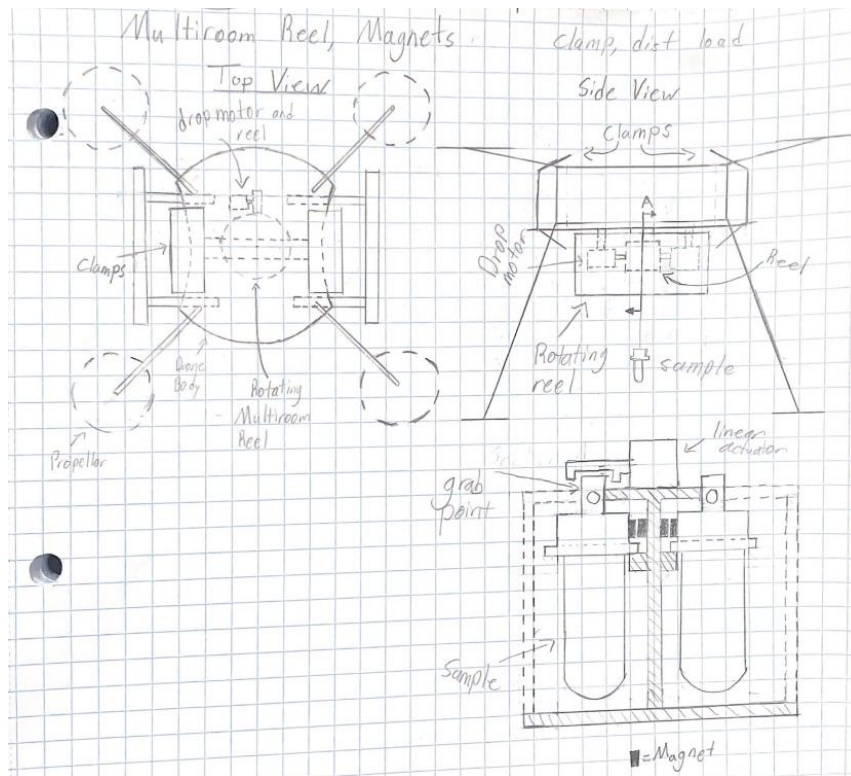 Multiroom Reel, Magnets
clamp, dist load
Top View
drop motor and
reel
Clamps
Drone
Body
Rotating
Multiroom
Reel
Propellor
Side View
Clamps
A
Drop
motor
Reel
Rotating
reel
sample
linear
actuator
grab
point
Sample
=Magnet